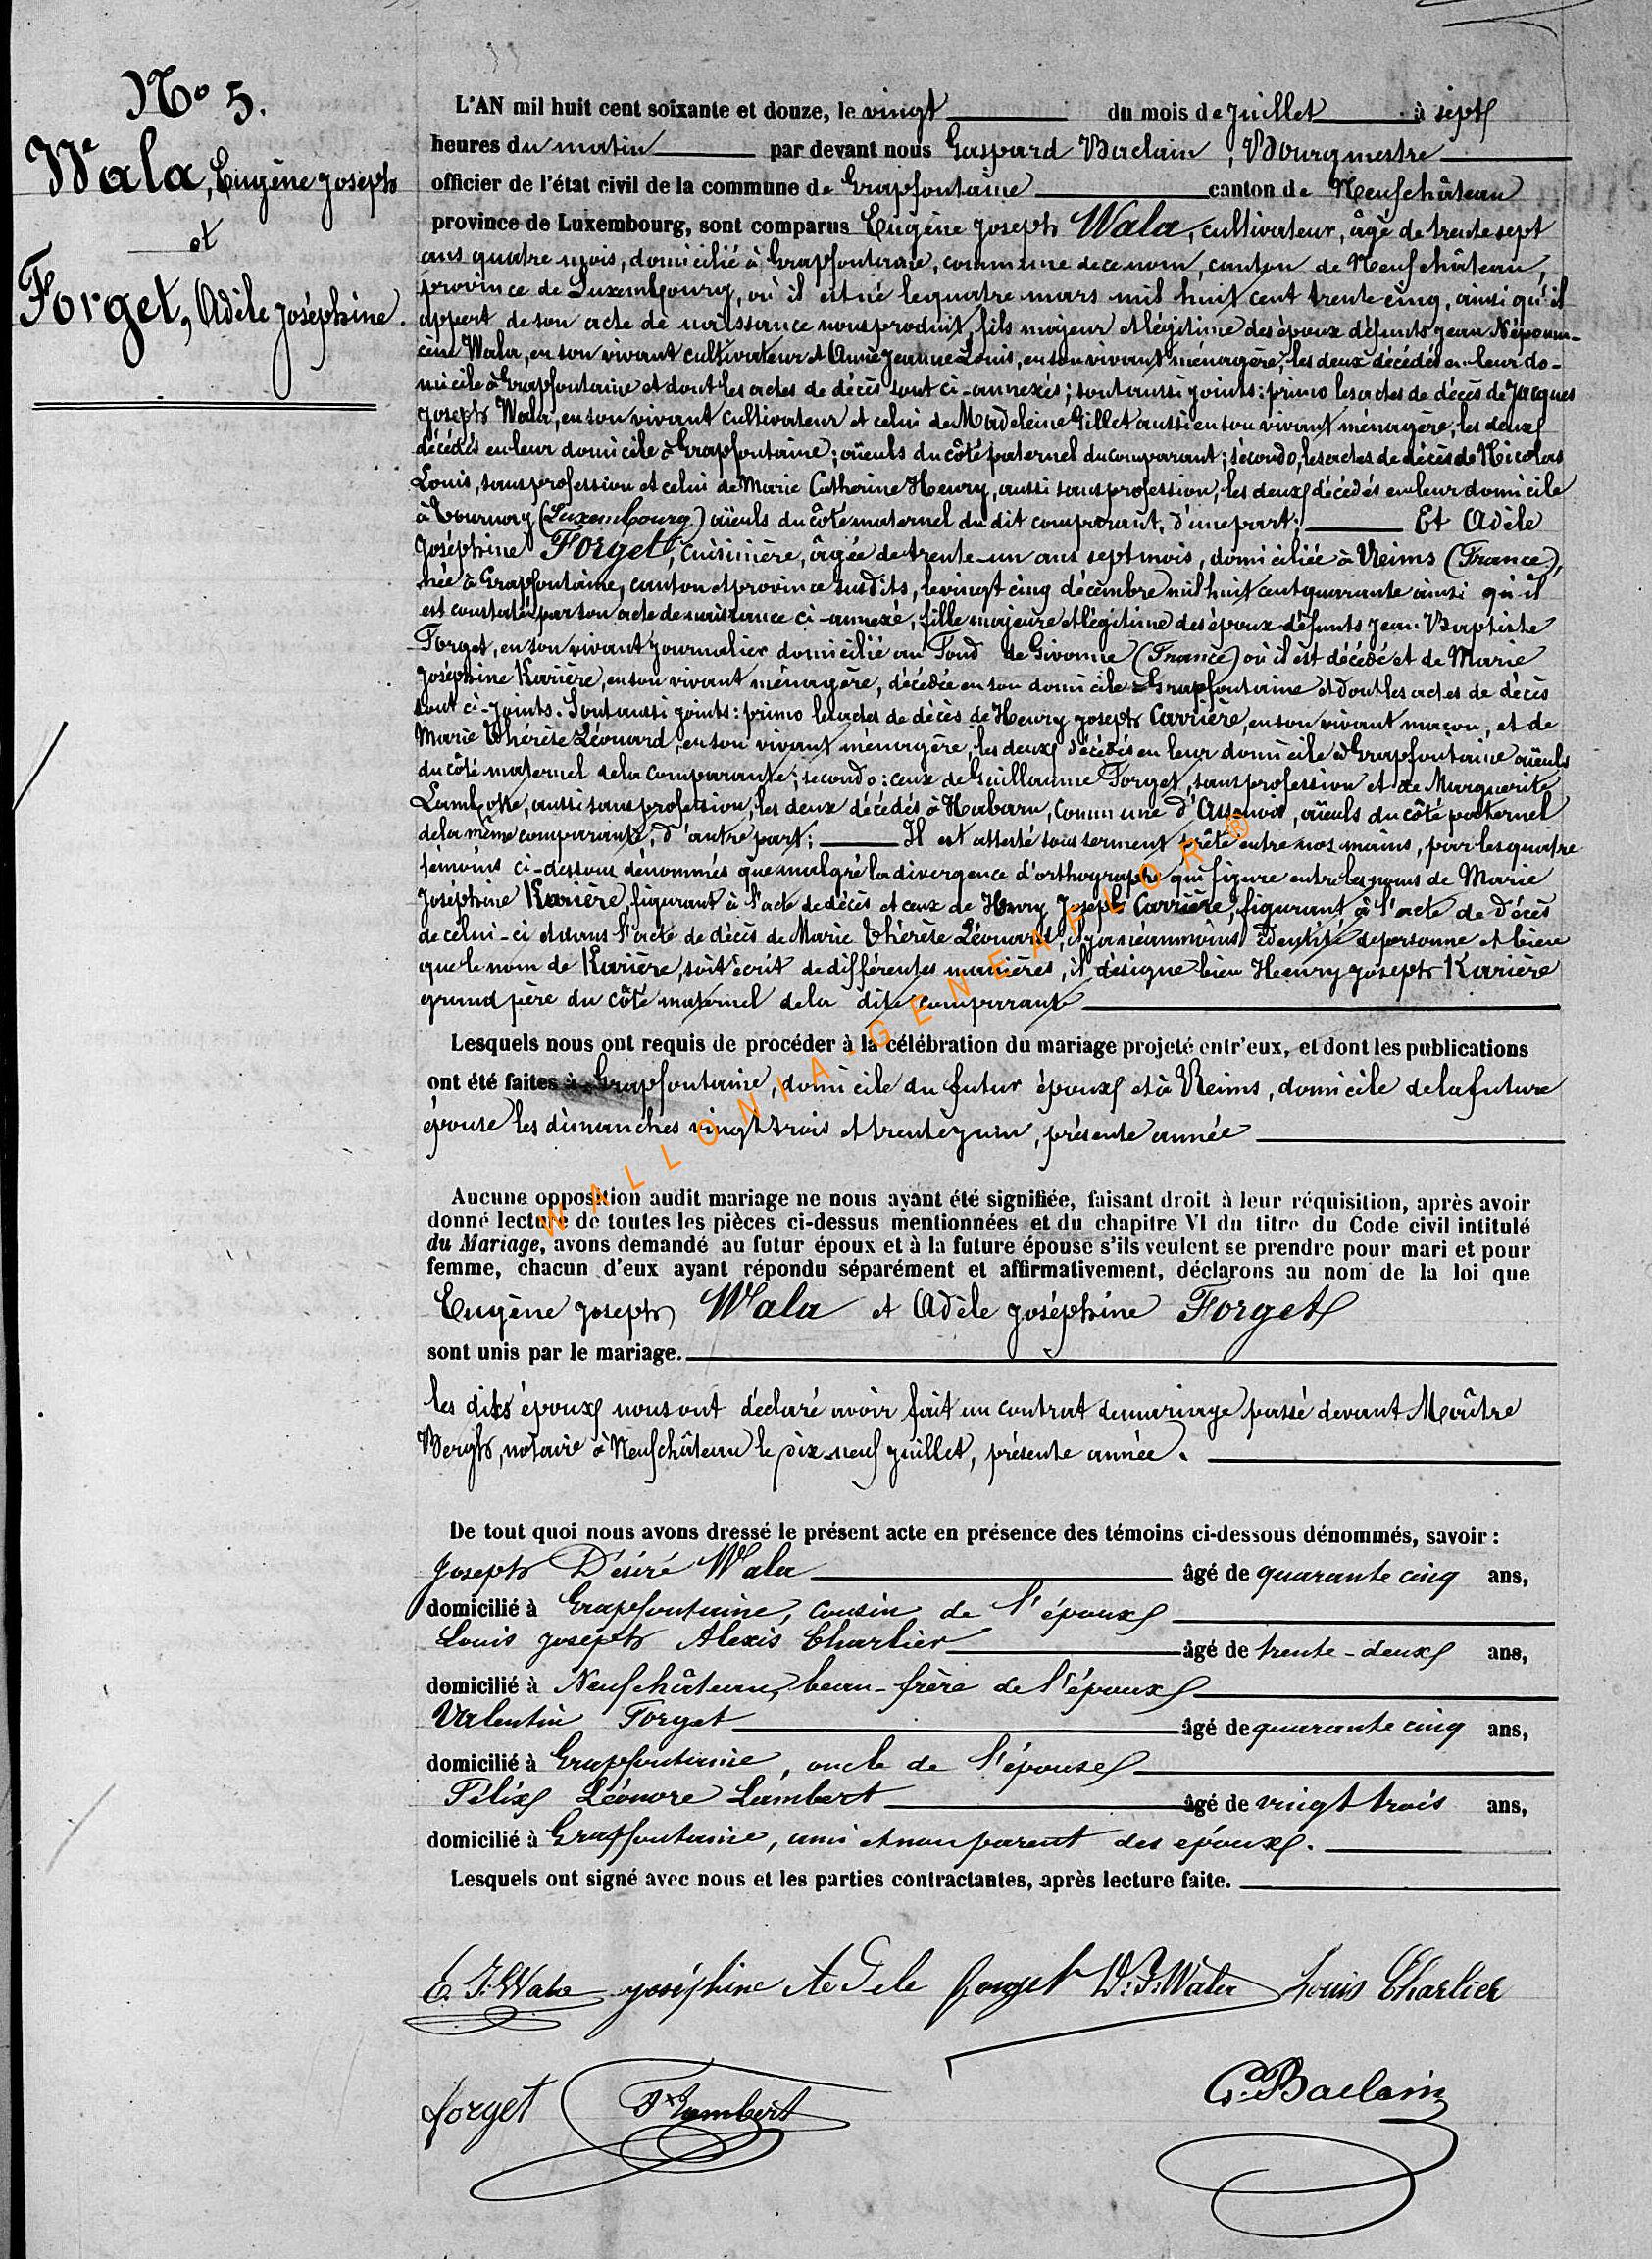 No 5.
Wala, Eugène Joseph
et
Forget, Adèle Joséphine.
L'AN mil huit cent soixante et douze, le vingt du mois de juillet à sept
heures du matin par devant nous Gaspard Baclain, Bourgmestre
officier de l'état civil de la commune de Grapfontaine canton de Neufchâteau
province de Luxembourg, sont comparus Eugène Joseph Wala, cultivateur, âgé de trente sept
ans quatre mois, domicilié à Grapfontaine, commune de ce nom, canton de Neufchâteau,
province de Luxembourg, où il est né le quatre mars mil huit cent trente cinq, ainsi qu'il
appert de son acte de naissance nous produit, fils majeur et légitime des époux défunts Jean Népomu-
cène Wala, en son vivant cultivateur et Anne Jeanne Louis, en son vivant ménagère, les deux décédés en leur do-
micile à Grapfontaine et dont les actes de décès sont ci-annexés; sont aussi joints: primo les actes de décès de Jacques
Joseph Wala, en son vivant cultivateur et celui de Madeleine Gillet aussi en son vivant ménagère, les deux
décédés en leur domicile à Grapfontaine; aïeuls du côté paternel du comparant; secondo, les actes de décès de Nicolas
Louis, sans profession et celui de Marie Catherine Henry, aussi sans profession, les deux décédés en leur domicile
à Tournay (Luxembourg) aïeuls du côté maternel du dit comparant, d'une part; Et Adèle
Joséphine Forget, cuisinière, âgée de trente-un ans sept mois, domiciliée à Reims (France),
née à Grapfontaine, canton et province susdits, le vingt cinq décembre mil huit cent quarante ainsi qu'il
est constaté par son acte de naissance ci-annexé, fille majeure et légitime des époux défunts Jean Baptiste
Forget, en son vivant journalier domicilié au Fond de Givonne (France) où il est décédé et de Marie
Joséphine Karière, en son vivant ménagère, décédée en son domicile à Grapfontaine et dont les actes de décès
sont ci-joints. Sont aussi joints: primo les actes de décès de Henry Joseph Carrière, en son vivant maçon, et de
Marie Thérèse Léonard, en son vivant ménagère, les deux décédés en leur domicile à Grapfontaine aïeuls
du côté maternel de la comparante; secondo: ceux de Guillaume Forget, sans profession et de Marguerite
Lambotte, aussi sans profession, les deux décédés à Habaru, commune d'Assenois, aïeuls du côté paternel
de la même comparante, d'autre part; Il est attesté sous serment prêté entre nos mains, par les quatre
témoins ci-dessous dénommés que malgré la divergence d'orthographe qui figure entre les noms de Marie
Joséphine Karière, figurant à l'acte de décès et ceux de Henry Joseph Carrière, figurant à l'acte de décès
de celui-ci et dans l'acte de décès de Marie Thérèse Léonard, il y a néanmoins identité de personne et bien
que le nom de Karière, soit écrit de différentes manières, il désigne bien Henry Joseph Karière
grand père du côté maternel de la dite comparante
Lesquels nous ont requis de procéder à la célébration du mariage projeté entr'eux, et dont les publications
ont été faites à Grapfontaine, domicile du futur époux et à Reims, domicile de la future
épouse les dimanches vingt trois et trente juin, présente année
Aucune opposition audit mariage ne nous ayant été signifiée, faisant droit à leur réquisition, après avoir
donné lecture de toutes les pièces ci-dessus mentionnées et du chapitre VI du titre du Code civil intitulé
du Mariage, avons demandé au futur époux et à la future épouse s'ils veulent se prendre pour mari et pour
femme, chacun d'eux ayant répondu séparément et affirmativement, déclarons au nom de la loi que
Eugène Joseph Wala et Adèle Joséphine Forget
sont unis par le mariage.
les dits époux nous ont déclaré avoir fait un contrat de mariage passé devant Maître
Bergh, notaire à Neufchâteau le dix-neuf juillet, présente année.
De tout quoi nous avons dressé le présent acte en présence des témoins ci-dessous dénommés, savoir :
Joseph Désiré Wala âgé de quarante cinq ans,
domicilié à Grapfontaine, cousin de l'époux
Louis Joseph Alexis Charlier âgé de trente-deux ans,
domicilié à Neufchâteau, beau-frère de l'époux
Valentin Forget âgé de quarante cinq ans,
domicilié à Grapfontaine, oncle de l'épouse
Félix Léonore Lambert âgé de vingt trois ans,
domicilié à Grapfontaine, ami et non parent des époux.
Lesquels ont signé avec nous et les parties contractantes, après lecture faite.
E. J. Wala Joséphine Adele forget D. J. Wala Louis Charlier
forget F Lambert G. Baclain
WALLONIA-GENEAFLOR ®